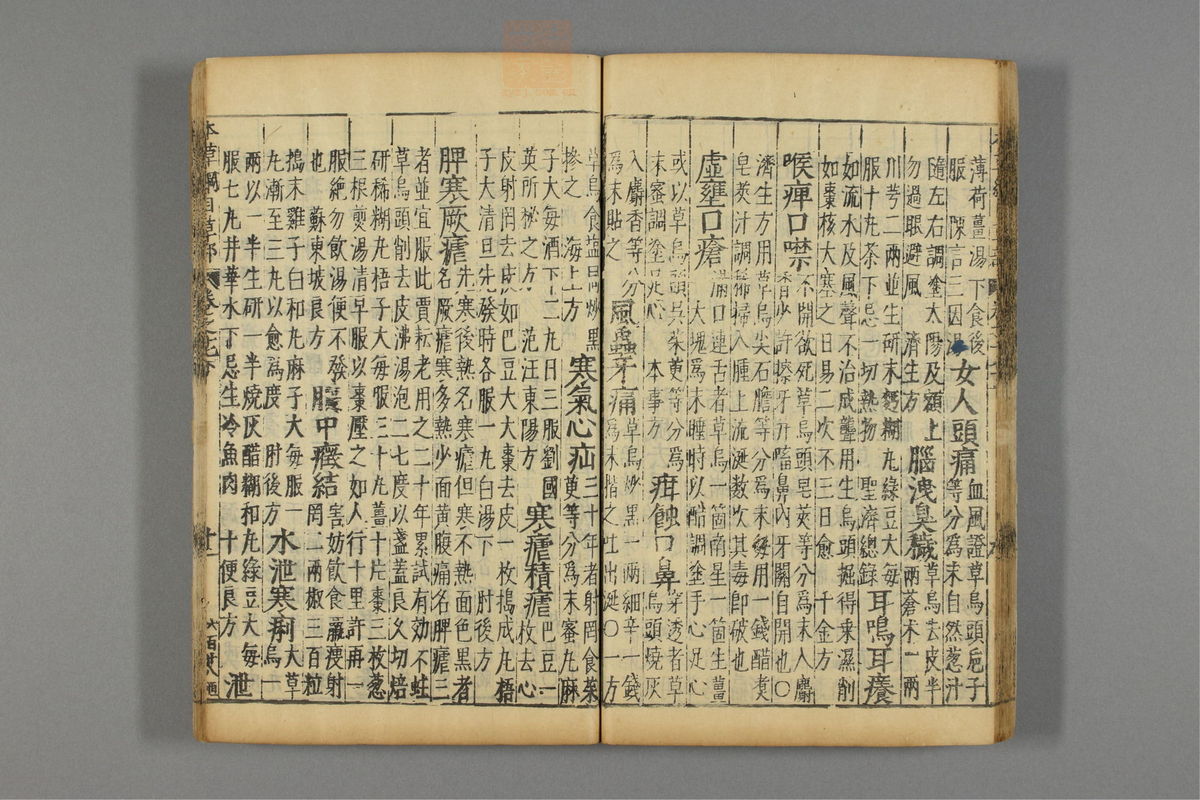 薄荷薑湯下食後
服 陳言三因
女人頭痛
血風證草烏頭巵子
等分為末自然葱汁
隨左右調塗太陽及額上
勿過眼避風 濟生方
腦洩臭穢
草烏去皮半
兩蒼术一兩
川芎二兩並生研末麪糊丸綠豆大每
服十丸茶下忌一切熱物 聖濟總錄
耳鳴耳癢
如流水及風聲不治成聾用生烏頭掘得乘濕削
如棗核大塞之日易二次不三日愈 千金方
喉痺口噤
不開欲死草烏頭皂莢等分為末入麝
香少許擦牙并㗜鼻內牙關自開也〇
濟生方用草烏尖石膽等分為末每用一錢醋煑
皂莢汁調稀掃入腫上流涎數次其毒即破也
虛壅口瘡
滿口連舌者草烏一箇南星一箇生薑
一大塊為末睡時以醋調塗手心足心
或以草烏頭吳茱萸等分為
末蜜調塗足心 本事方
疳蝕口鼻
穿透者草
烏頭燒灰
入麝香等分
為末貼之
風蟲牙痛
草烏炒黑一兩細辛一錢
為末揩之吐出涎〇一方
草烏食鹽同炒黑
摻之 海上方
寒氣心疝
三十年者射罔食茱
萸等分為末蜜丸麻
子大每酒下二丸日三服劉國
英所秘之方 范汪東陽方
寒瘧積瘧
巴豆一
枚去心
皮射罔去皮如巴豆大大棗去皮一枚搗成丸梧
子大清旦先發時各服一丸白湯下 肘後方
脾寒厥瘧
先寒後熱名寒瘧但寒不熱面色黑者
名厥瘧寒多熱少面黃腹痛名脾瘧三
者並宜服此賈耘老用之二十年累試有効不蛀
草烏頭削去皮沸湯泡二七度以盞蓋良久切焙
研稀糊丸梧子大每服三十丸薑十片棗三枚葱
三根煎湯清早服以棗壓之如人行十里許再一
服絕勿飲湯便不發
也 蘇東坡良方
腹中癥結
害妨飲食羸瘦射
罔二兩椒三百粒
搗末雞子白和丸麻子大每服一
丸漸至三丸以愈為度 肘後方
水泄寒痢
大草
烏一
兩以一半生研一半燒灰醋糊和丸綠豆大每
服七丸井華水下忌生冷魚肉 十便良方
泄
本草綱目草部